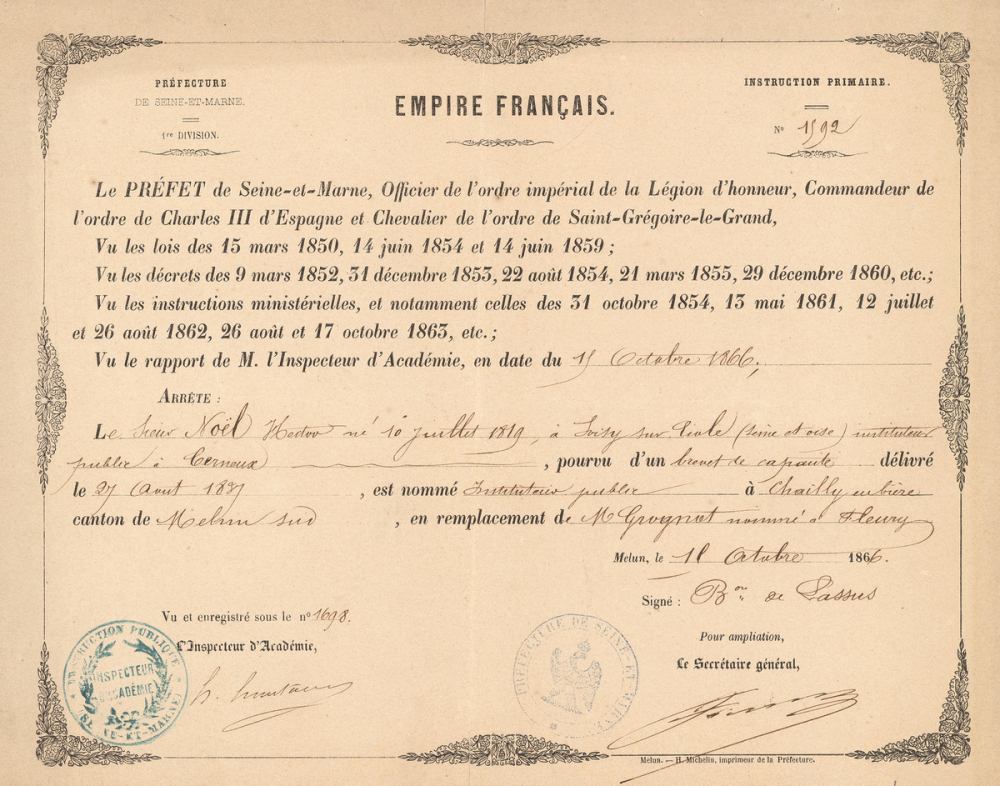 PRÉFECTURE
DE SEINE-ET-MARNE.
1re DIVISION.
EMPIRE FRANÇAIS.
INSTRUCTION PRIMAIRE.
No 1592
Le PRÉFET de Seine-et-Marne, Officier de l'ordre impérial de la Légion d'honneur, Commandeur de
l'ordre de Charles III d'Espagne et Chevalier de l'ordre de Saint-Grégoire-le-Grand,
Vu les lois des 15 mars 1850, 14 juin 1854 et 14 juin 1859 ;
Vu les décrets des 9 mars 1852, 31 décembre 1853, 22 août 1854, 21 mars 1855, 29 décembre 1860, etc.;
Vu les instructions ministérielles, et notamment celles des 31 octobre 1854, 13 mai 1861, 12 juillet
et 26 août 1862, 26 août et 17 octobre 1863, etc.;
Vu le rapport de M. l'Inspecteur d'Académie, en date du 15 Octobre 1866,
ARRÊTE :
Le Sieur Noël Hector né 10 juillet 1819, à (Seine et oise) instituteur
public à Cerneux, pourvu d'un brevet de capacité délivré
le 27 Aout 1837, est nommé Instituteur public à Chailly en bière
canton de Melun sud, en remplacement de M Grognot nommé à Fleury
Melun, le Octobre 1866.
Signé : Bon de Lassus
Vu et enregistré sous le no 1698.
L'Inspecteur d'Académie,
Pour ampliation,
Le Secrétaire général,
INSTRUCTION PUBLIQUE
INSPECTEUR
D'ACADÉMIE
SEINE-ET-MARNE
PRÉFECTURE DE SEINE-ET-MARNE
Melun. — H. Michelin, imprimeur de la Préfecture.